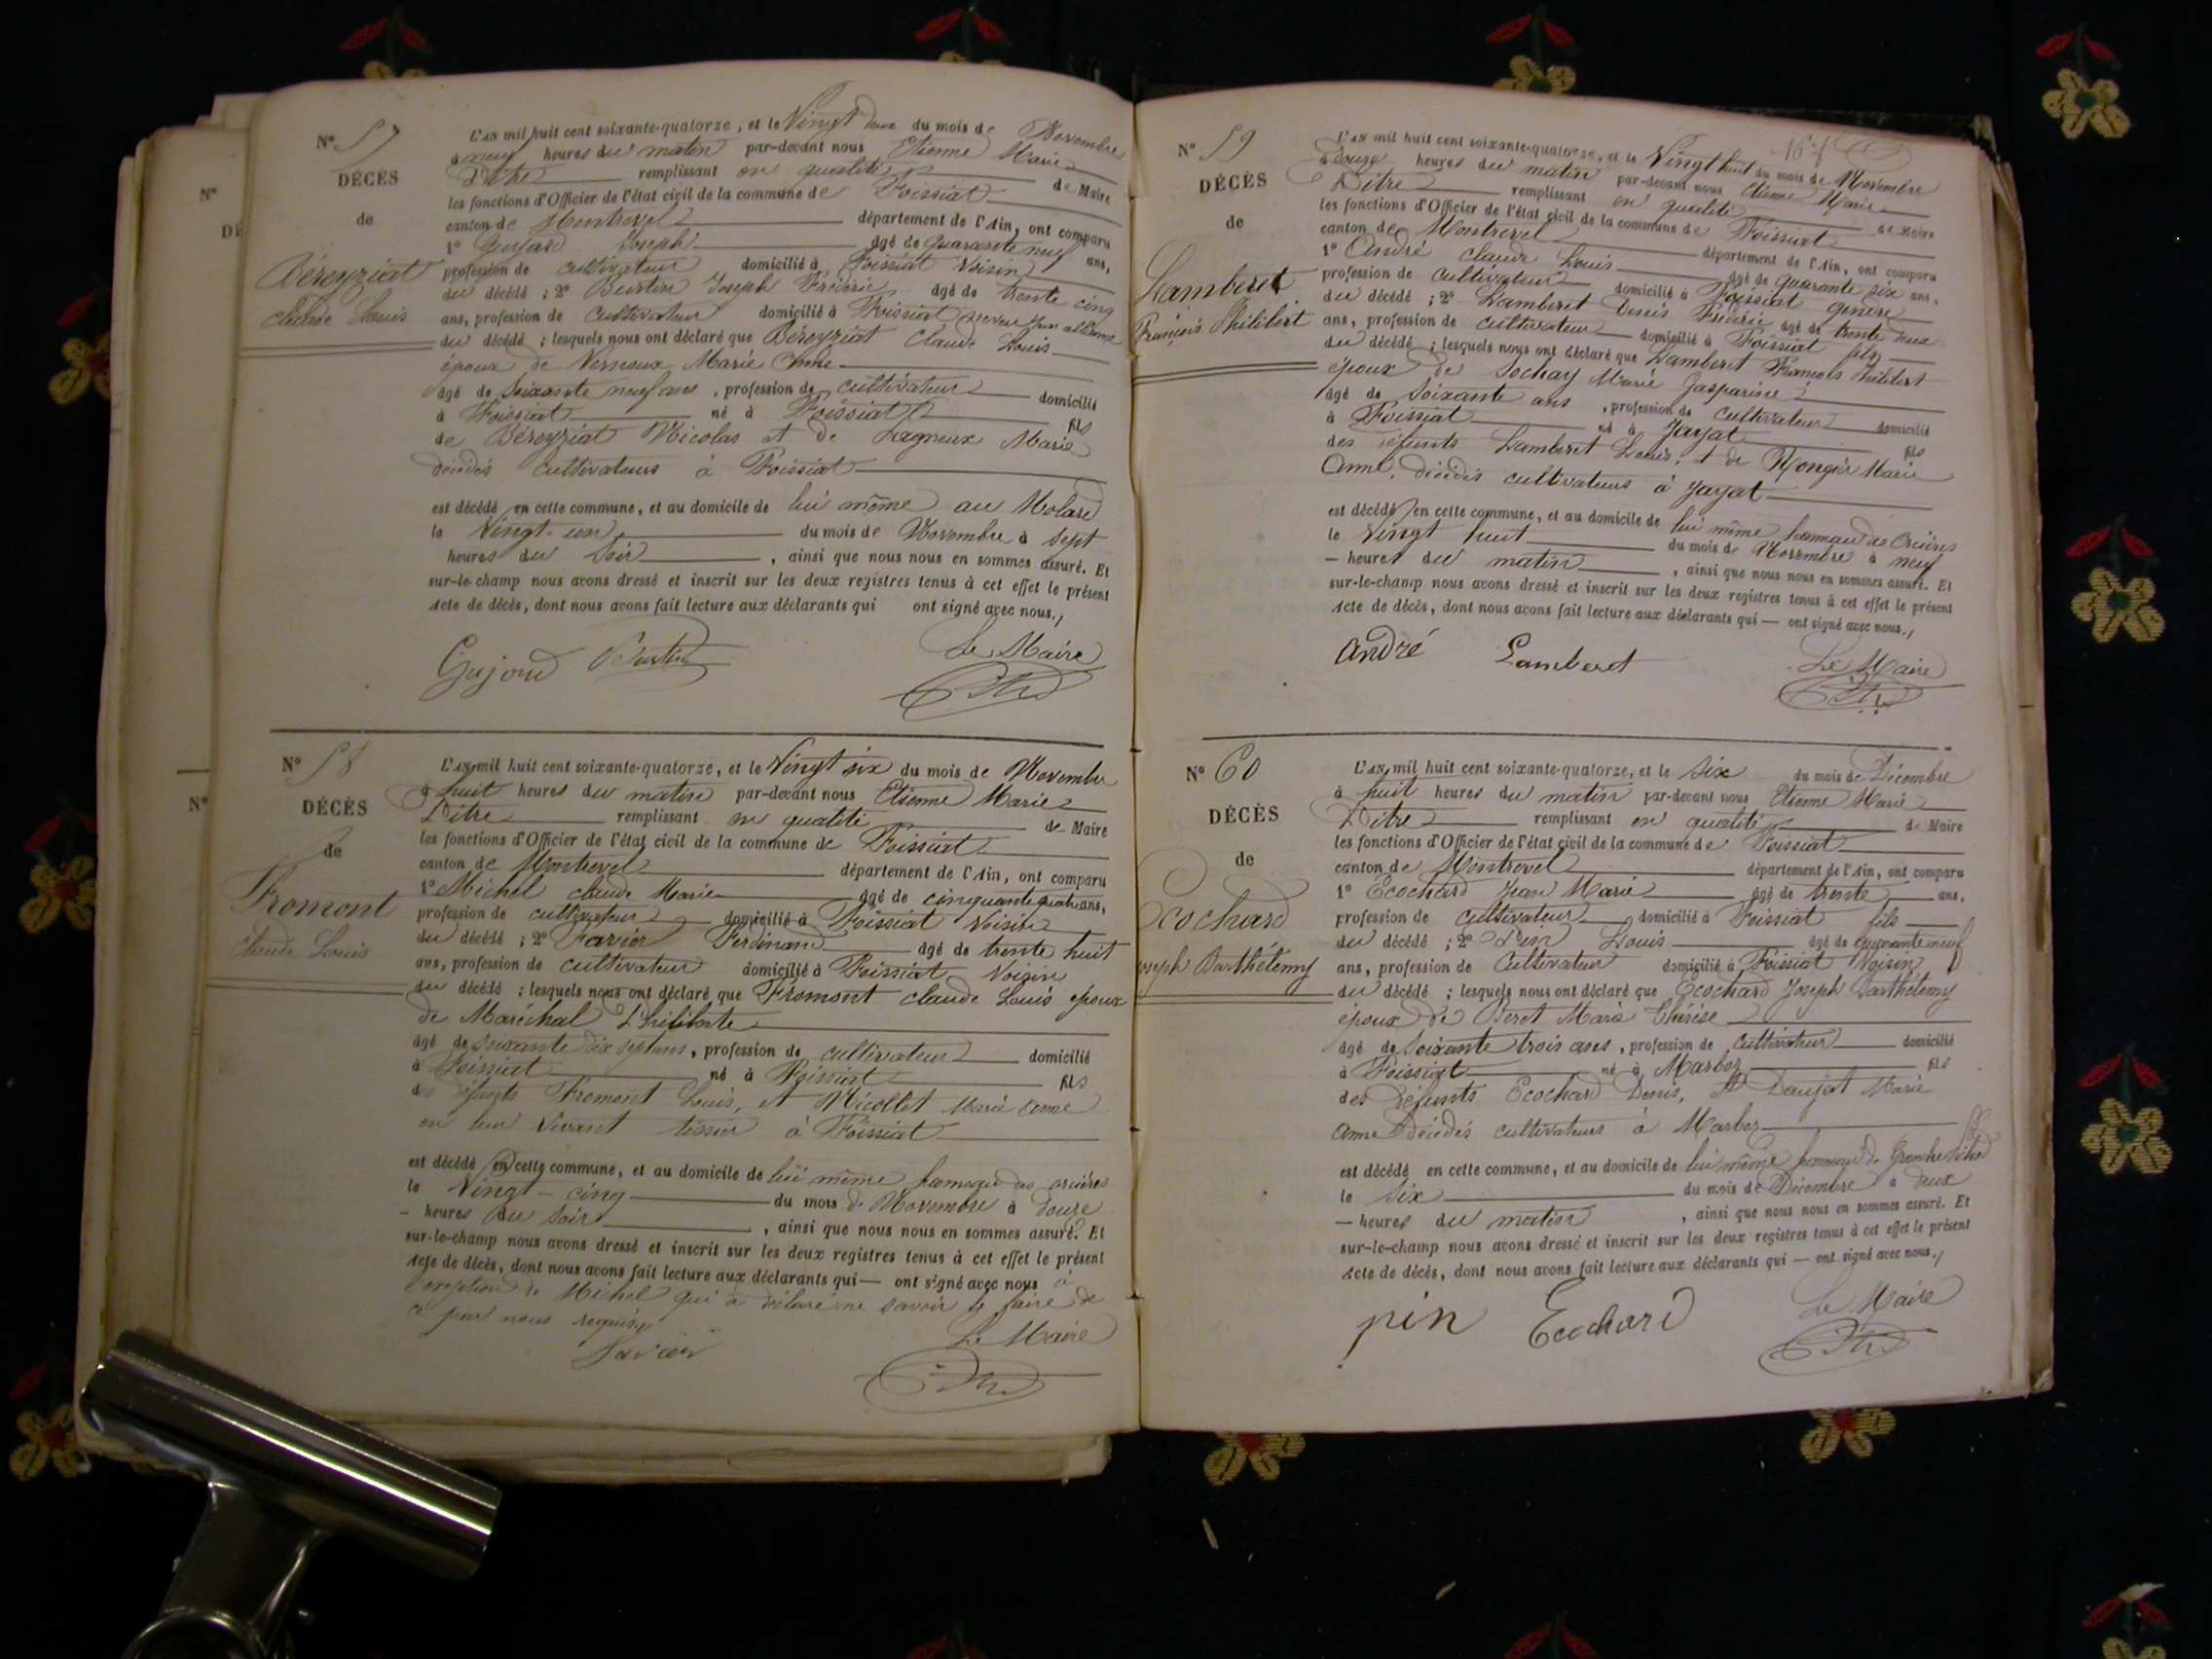 N° 57
DÉCÈS
de
Béreyziat
Claude Louis
L'AN mil huit cent soixante-quatorze, et le Vingt deux du mois de Novembre
à neuf heures du matin par-devant nous Etienne Marie
Pitre remplissant en qualité de Maire
les fonctions d'Officier de l'état civil de la commune de Foissiat
canton de Montrevel département de l'Ain, ont comparu
1° Gujard Joseph âgé de quarante neuf ans,
profession de cultivateur domicilié à Foissiat Voisin
du décédé ; 2° Burtin Joseph âgé de trente cinq
ans, profession de cultivateur domicilié à Foissiat
du décédé ; lesquels nous ont déclaré que Béreyziat Claude Louis
époux de Vernoux Marie Anne
âgé de soixante neuf ans, profession de cultivateur domicilié
à Foissiat né à Foissiat fils
de Béreyziat Nicolas et de Lagneux Marie
décédés cultivateurs à Foissiat
est décédé en cette commune, et au domicile de lui même au Molard
le Vingt-un du mois de Novembre à sept
heures du soir, ainsi que nous nous en sommes assuré. Et
sur-le-champ nous avons dressé et inscrit sur les deux registres tenus à cet effet le présent
acte de décès, dont nous avons fait lecture aux déclarants qui ont signé avec nous.
Gujard Burtin Le Maire
N° 58
DÉCÈS
de
Fromont
Claude Louis
L'AN mil huit cent soixante-quatorze, et le Vingt six du mois de Novembre
à huit heures du matin par-devant nous Etienne Marie
Pitre remplissant en qualité de Maire
les fonctions d'Officier de l'état civil de la commune de Foissiat
canton de Montrevel département de l'Ain, ont comparu
1° Michel claude Marie âgé de cinquante quatre ans,
profession de cultivateur domicilié à Foissiat Voisin
du décédé ; 2° Favier Ferdinand âgé de trente huit
ans, profession de cultivateur domicilié à Foissiat Voisin
du décédé ; lesquels nous ont déclaré que Fromont claude Louis époux
de Maréchal Philiberte
âgé de soixante dix sept ans, profession de cultivateur domicilié
à Foissiat né à Foissiat fils
des défunts Fromont Louis, et Nicollet Marie Anne
en leur vivant tissier à Foissiat
est décédé en cette commune, et au domicile de lui même hameau des
le Vingt-cinq du mois de Novembre à douze
heures du soir, ainsi que nous nous en sommes assuré. Et
sur-le-champ nous avons dressé et inscrit sur les deux registres tenus à cet effet le présent
acte de décès, dont nous avons fait lecture aux déclarants qui — ont signé avec nous à
l'exception de Michel qui a déclaré ne savoir le faire de
ce par nous requis
Le Maire
N° 59
DÉCÈS
de
Lamberet
François Philibert
L'AN mil huit cent soixante-quatorze, et le Vingt huit du mois de Novembre
à douze heures du matin par-devant nous Etienne Marie
Pitre remplissant en qualité de Maire
les fonctions d'Officier de l'état civil de la commune de Foissiat
canton de Montrevel département de l'Ain, ont comparu
1° André claude Louis âgé de quarante six ans,
profession de cultivateur domicilié à Foissiat gendre
du décédé ; 2° Lamberet Denis Frédéric âgé de trente deux
ans, profession de cultivateur domicilié à Foissiat fils
du décédé ; lesquels nous ont déclaré que Lamberet François Philibert
époux de Sochay Marie Gasparine
âgé de soixante ans, profession de cultivateur domicilié
à Foissiat né à Jayat fils
des défunts Lamberet Louis, et de Rongier Marie
Anne, décédés cultivateurs à Jayat
est décédé en cette commune, et au domicile de lui même hameau des
le Vingt huit du mois de Novembre à neuf
— heures du matin, ainsi que nous nous en sommes assuré. Et
sur-le-champ nous avons dressé et inscrit sur les deux registres tenus à cet effet le présent
acte de décès, dont nous avons fait lecture aux déclarants qui — ont signé avec nous.
andré Lamberet Le Maire
N° 60
DÉCÈS
de
Ecochard
Joseph Barthélemy
L'AN mil huit cent soixante-quatorze, et le six du mois de Décembre
à huit heures du matin par-devant nous Etienne Marie
Pitre remplissant en qualité de Maire
les fonctions d'Officier de l'état civil de la commune de Foissiat
canton de Montrevel département de l'Ain, ont comparu
1° Ecochard Jean Marie âgé de trente ans,
profession de cultivateur domicilié à Foissiat fils
du décédé ; 2° Pin Louis âgé de quarante neuf
ans, profession de Cultivateur domicilié à Foissiat Voisin
du décédé ; lesquels nous ont déclaré que Ecochard Joseph Barthélemy
époux de Beret Marie Thérèse
âgé de soixante trois ans, profession de cultivateur domicilié
à Foissiat né à Marboz fils
des défunts Ecochard Denis, et Daujat Marie
Anne décédés cultivateurs à Marboz
est décédé en cette commune, et au domicile de lui même hameau de
le six du mois de Décembre à deux
— heures du matin, ainsi que nous nous en sommes assuré. Et
sur-le-champ nous avons dressé et inscrit sur les deux registres tenus à cet effet le présent
acte de décès, dont nous avons fait lecture aux déclarants qui — ont signé avec nous.
pin Ecochard Le Maire